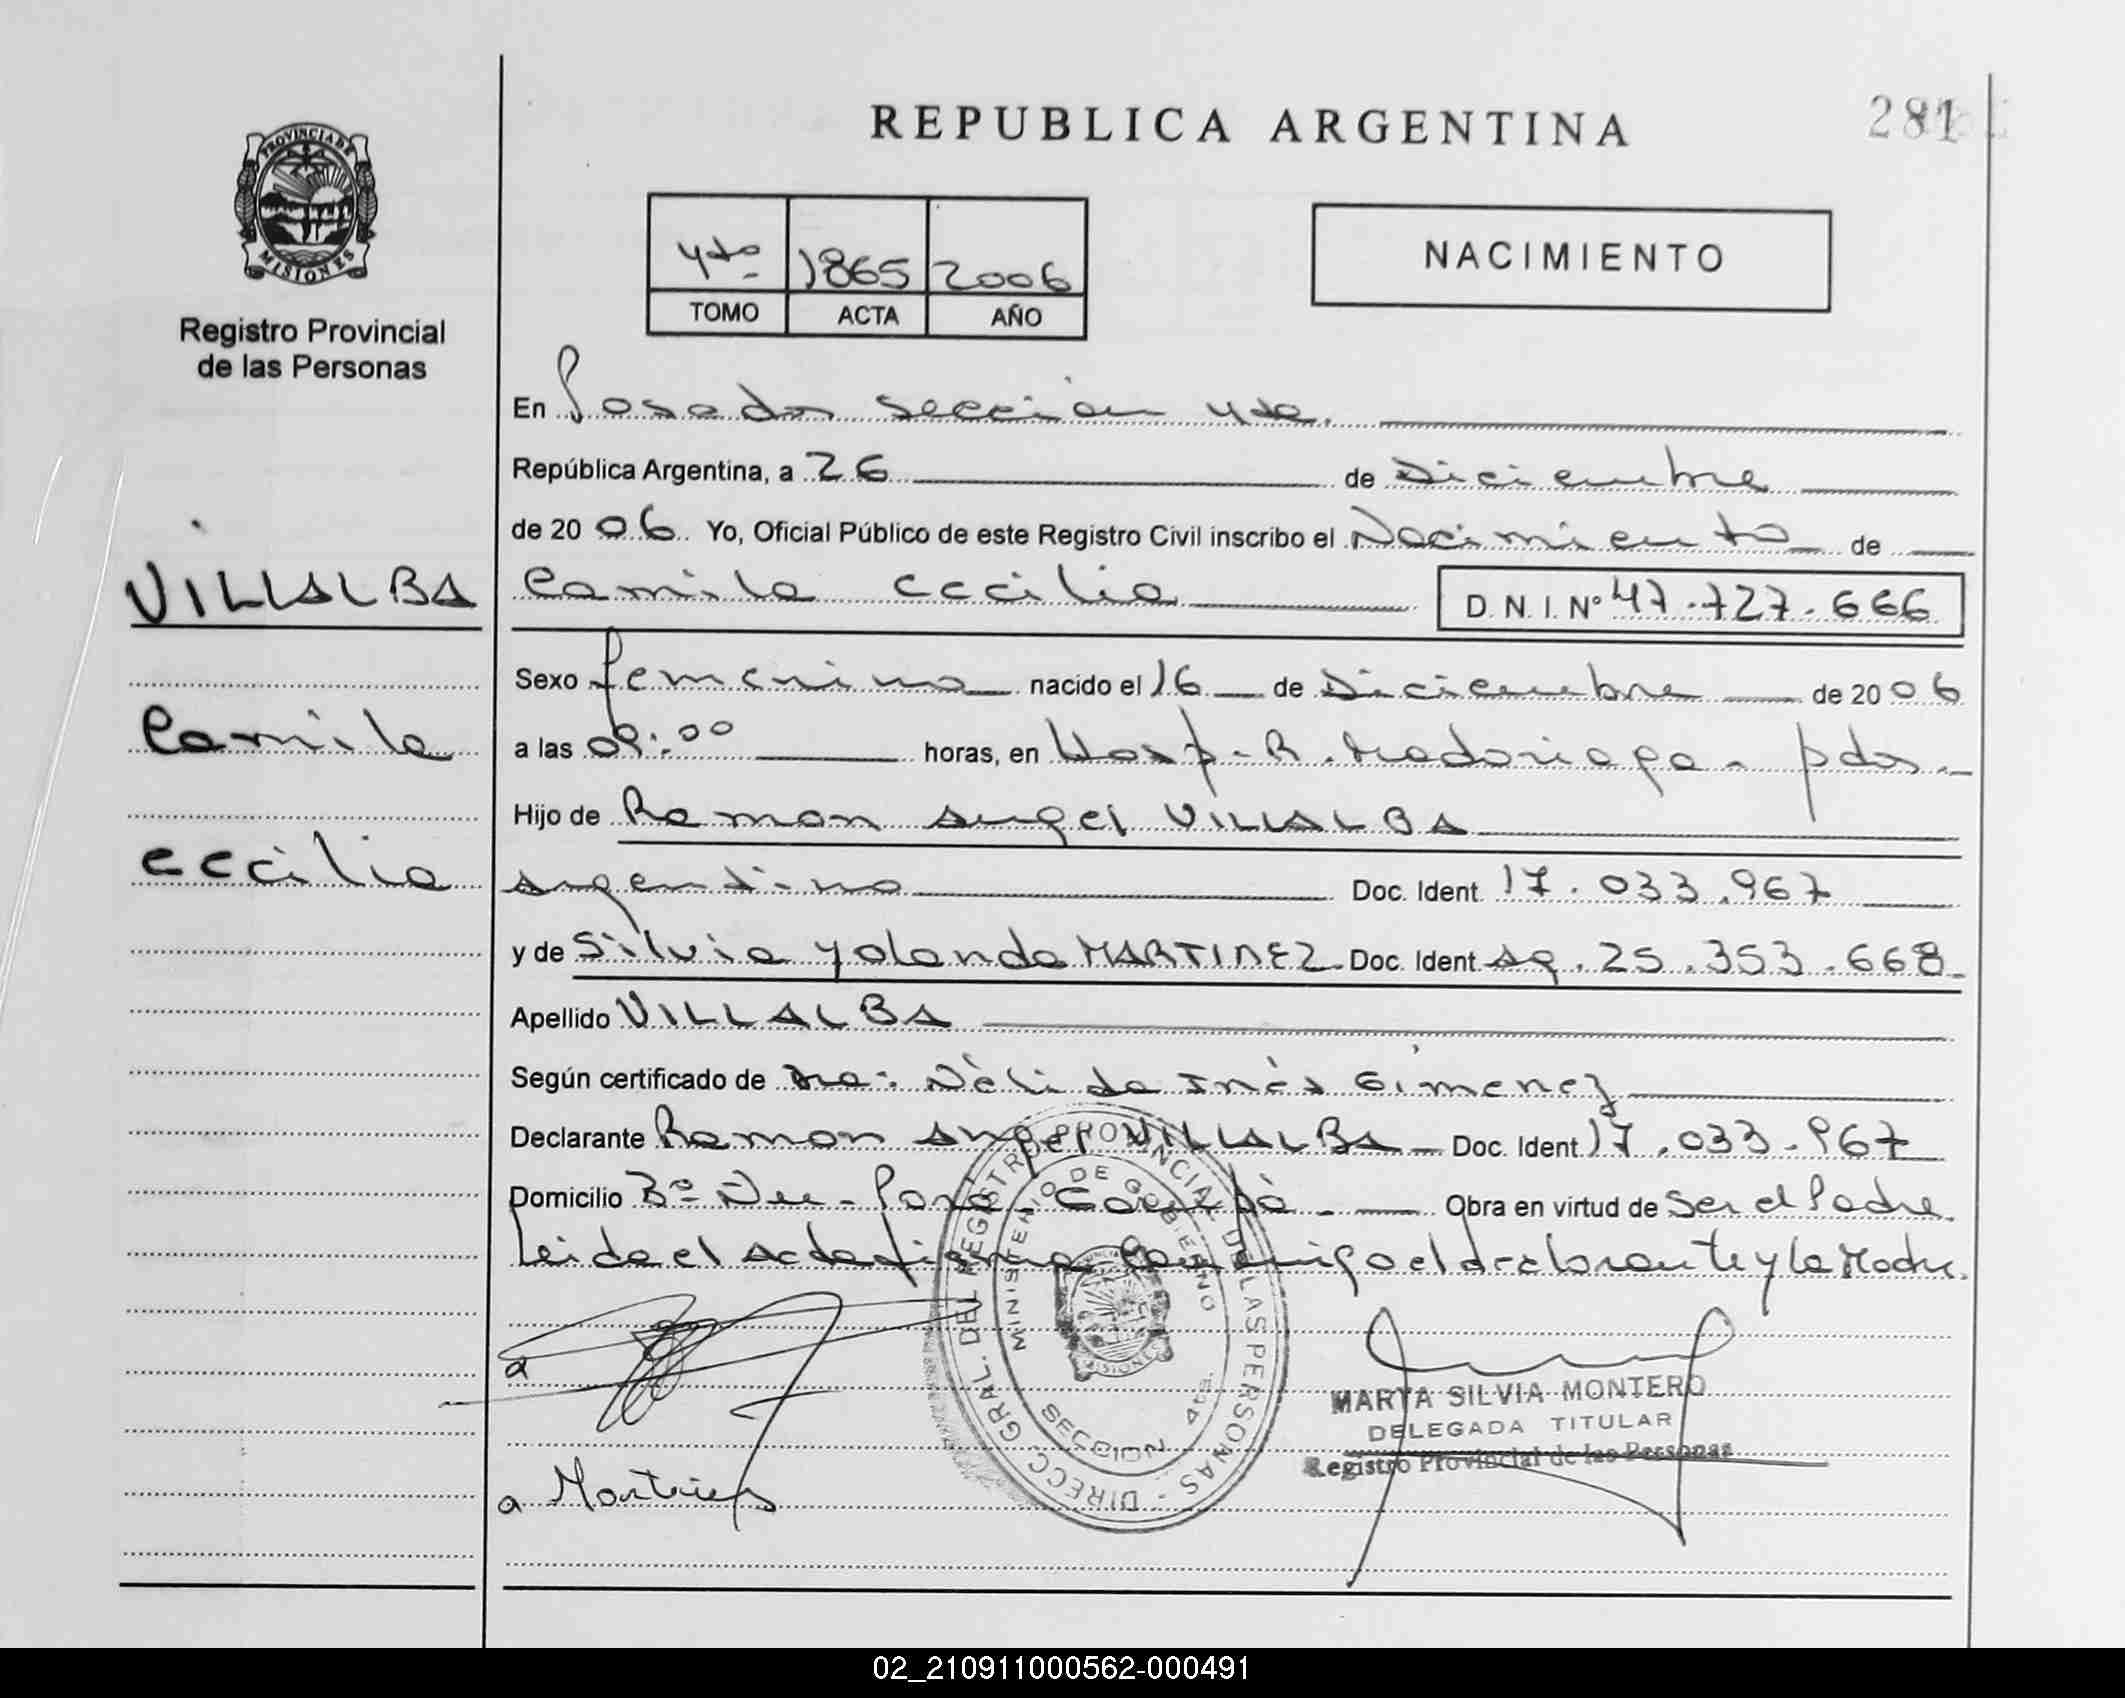 REPUBLICA ARGENTINA
281
PROVINCIA DE
MISIONES
Registro Provincial
de las Personas
4to 1865 2006
TOMO ACTA AÑO
NACIMIENTO
En Posadas sección 4ta.
República Argentina, a 26 de Diciembre
de 20 06. Yo, Oficial Público de este Registro Civil inscribo el Nacimiento de
VILLALBA
Camila Cecilia D. N. I. Nº 47.727.666
Sexo femenino nacido el 16 de Diciembre de 20 06
Camila
a las 09:00 horas, en Hosp. R. Madariaga - pdas.
Hijo de Ramon Angel VILLALBA
Cecilia
argentino Doc. Ident. 17.033.967
y de Silvia Yolanda MARTINEZ Doc. Ident. Ag. 25.353.668
Apellido VILLALBA
Según certificado de Dra. Nèlida Inès Gimenez
Declarante Ramon Angel VILLALBA Doc. Ident. 17.033.967
Domicilio Bº Obra en virtud de ser el Padre
Leida el Acta firma conmigo el declarante y la Madre.
DIRECC. GRAL. DEL REGISTRO PROVINCIAL DE LAS PERSONAS
MINISTERIO DE GOBIERNO
SECCION 4ta.
MISIONES
a
MARTA SILVIA MONTERO
DELEGADA TITULAR
Registro Provincial de las Personas
a Martinez
02_210911000562-000491